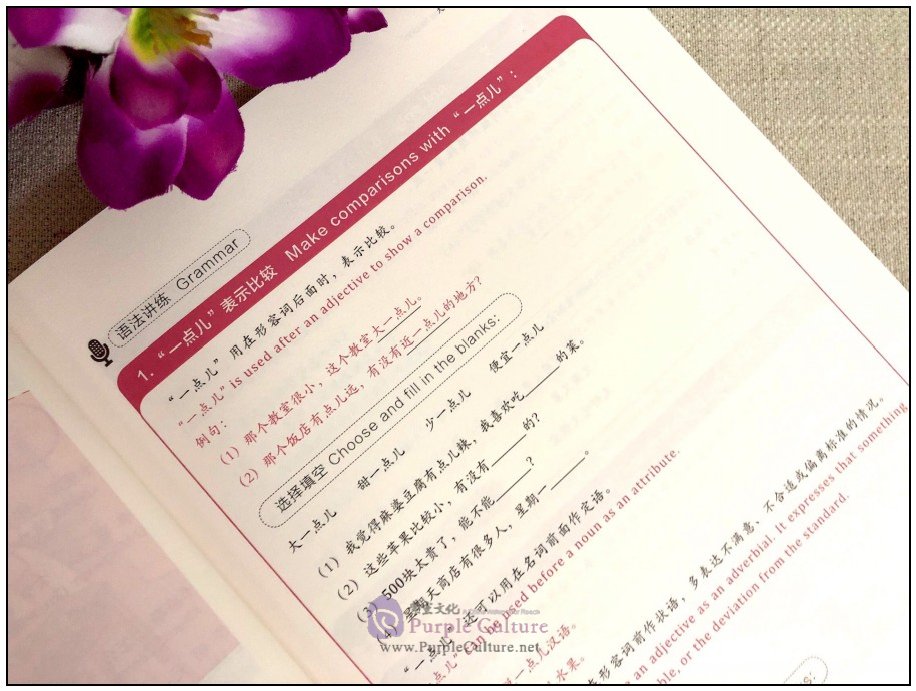 语法讲练 Grammar
1. “一点儿”表示比较 Make comparisons with “一点儿”:
“一点儿”用在形容词后面时，表示比较。
“一点儿” is used after an adjective to show a comparison.
例句：
(1) 那个教室很小，这个教室大一点儿。
(2) 那个饭店有点儿远，有没有近一点儿的地方？
选择填空 Choose and fill in the blanks:
大一点儿 甜一点儿 少一点儿 便宜一点儿
(1) 我觉得麻婆豆腐有点儿辣，我喜欢吃______的菜。
(2) 这些苹果比较小，有没有______的？
(3) 500块太贵了，能不能______？
(4) 星期天商店有很多人，星期一______。
“一点儿”还可以用在名词前面作定语。
“一点儿” can be used before a noun as an attribute.
一点儿汉语。
水果。
在形容词前作状语，多表达不满意、不合适或偏离标准的情况。
an adjective as an adverbial. It expresses that something
or the deviation from the standard.
Purple Culture
www.PurpleCulture.net